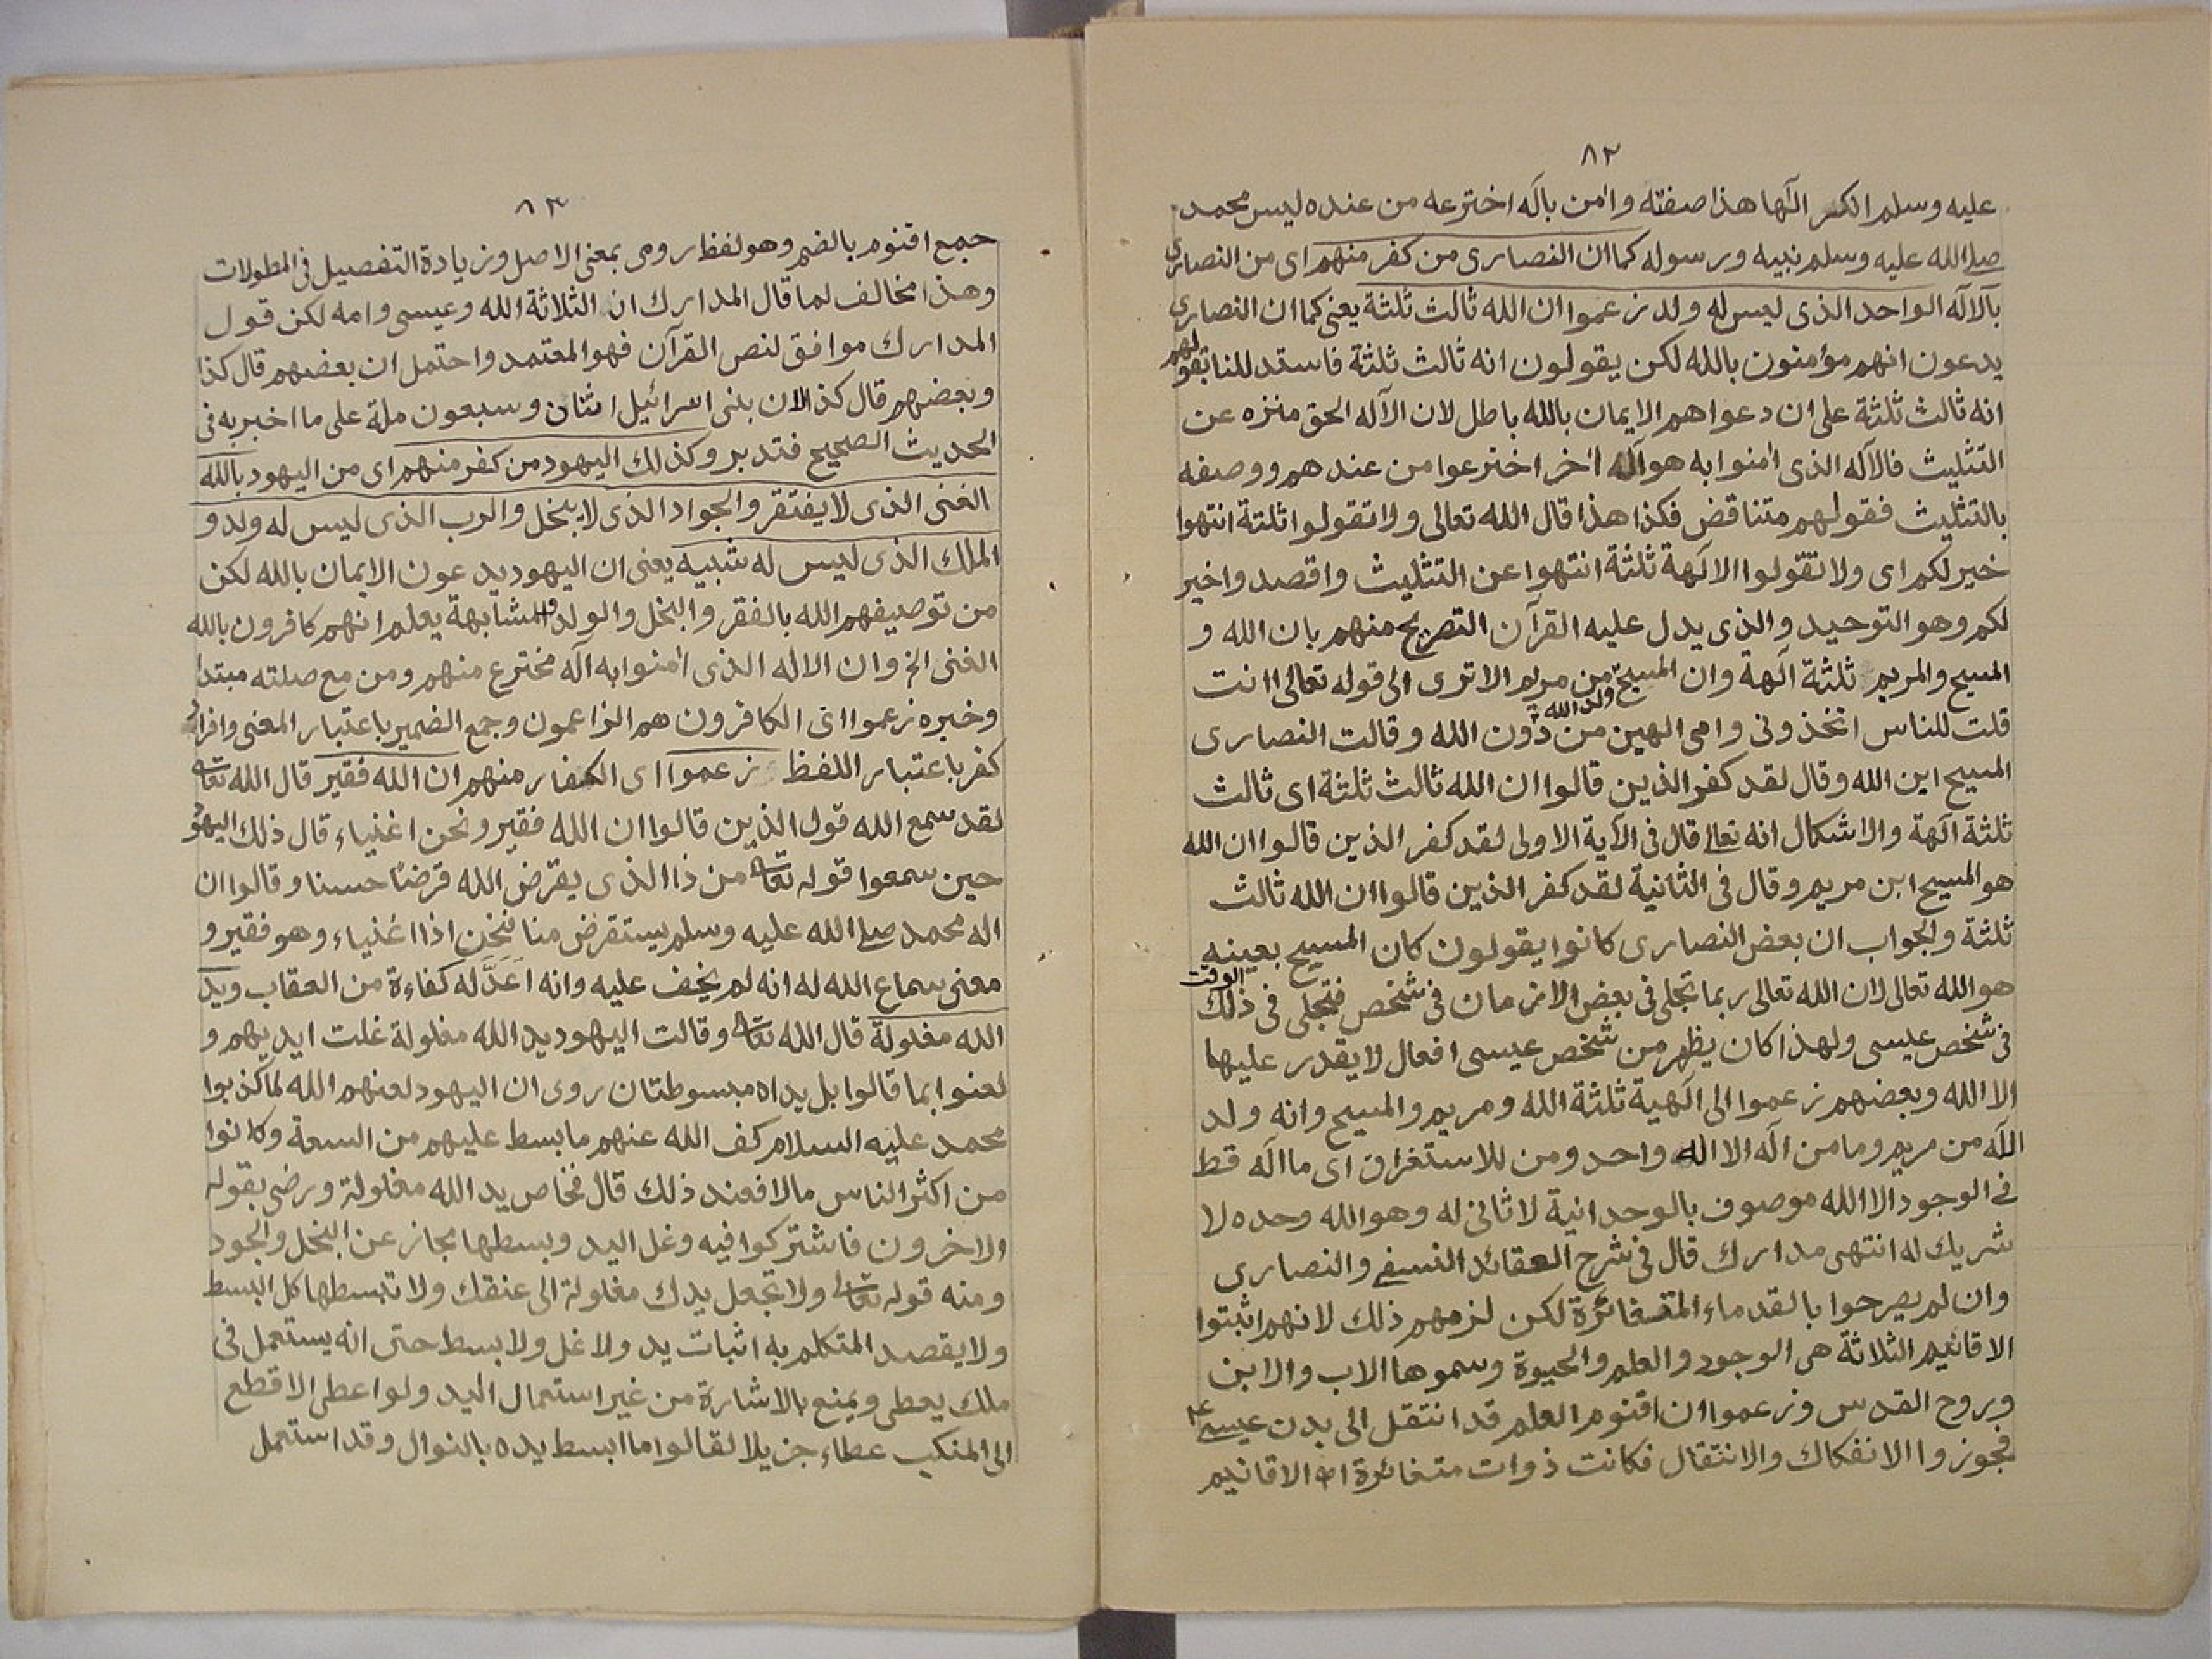 ٨٢
عليه وسلم انكر الٓها هذا صفته واٰمن بالٓه اخترعه من عنده ليس محمد
صلى الله عليه وسلم نبيه ورسوله كما ان النصارى من كفر منهم اى من النصارى
بالالٓه الواحد الذى ليس له ولد زعموا ان الله ثالث ثلثة يعنى كما ان النصارى
يدعون انهم مؤمنون بالله لكن يقولون انه ثالث ثلثة فاستد للنا بقولهم
انه ثالث ثلثة على ان دعواهم الايمان بالله باطل لان الالٓه الحق منزه عن
التثليث فالالٓه الذى اٰمنوا به هو الٓه اٰخر اخترعوا من عندهم ووصفه
بالتثليث فقولهم متناقض فكذا هذا قال الله تعالى ولا تقولوا ثلثة انتهوا
خير لكم اى ولا تقولوا الالٓهة ثلثة انتهوا عن التثليث واقصد واخير
لكم وهو التوحيد والذى يدل عليه القرآن التصريح منهم بان الله و
المسيح والمريم ثلثة الٓهة وان المسيح ولد الله من مريم الا ترى الى قوله تعالى اانت
قلت للناس اتخذونى وامى الهين من دون الله وقالت النصارى
المسيح ابن الله وقال لقد كفر الذين قالوا ان الله ثالث ثلثة اى ثالث
ثلثة الٓهة والاشكال انه تعالى قال فى الآية الاولى لقد كفر الذين قالوا ان الله
هو المسيح ابن مريم وقال فى الثانية لقد كفر الذين قالوا ان الله ثالث
ثلثة والجواب ان بعض النصارى كانوا يقولون كان المسيح بعينه
هو الله تعالى لان الله تعالى ربما تجلى فى بعض الازمان فى شخص فتجلى فى ذلك الوقت
فى شخص عيسى ولهذا كان يظهر من شخص عيسى افعال لا يقدر عليها
الا الله وبعضهم زعموا الى الٓهية ثلثة الله ومريم والمسيح وانه ولد
الله من مريم وما من الٓه الا اله واحد ومن للاستغراق اى ما الٓه قط
فى الوجود الا الله موصوف بالوحدانية لا ثانى له وهو الله وحده لا
شريك له انتهى مدارك قال فى شرح العقائد النسفى والنصارى
وان لم يصرحوا بالقدماء المتغائرة لكن لزمهم ذلك لانهم اثبتوا
الاقانيم الثلاثة هى الوجود والعلم والحيوة وسموها الاب والابن
وروح القدس وزعموا ان اقنوم العلم قد انتقل الى بدن عيسى ع
فجوزوا الانفكاك والانتقال فكانت ذوات متغائرة اھ الاقانيم
٨٣
جمع اقنوم بالضم وهو لفظ رومى بمعنى الاصل وزيادة التفصيل فى المطولات
وهذا مخالف لما قال المدارك ان الثلاثة الله وعيسى وامه لكن قول
المدارك موافق لنص القرآن فهو المعتمد واحتمل ان بعضهم قال كذا
وبعضهم قال كذا لان بنى اسرائيل اثنان وسبعون ملة على ما اخبر به فى
الحديث الصحيح فتدبر وكذلك اليهود من كفر منهم اى من اليهود بالله
الغنى الذى لا يفتقر والجواد الذى لا يبخل والرب الذى ليس له ولد و
الملك الذى ليس له شبيه يعنى ان اليهود يدعون الايمان بالله لكن
من توصيفهم الله بالفقر والبخل والولد والمشابهة يعلم انهم كافرون بالله
الغنى الخ وان الاله الذى اٰمنوا به الٓه مخترع منهم ومن مع صلته مبتدا
وخبره زعموا اى الكافرون هم الزاعمون وجمع الضمير باعتبار المعنى وافراد
كفر باعتبار اللفظ زعموا اى الكفار منهم ان الله فقير قال الله تعا
لقد سمع الله قول الذين قالوا ان الله فقير ونحن اغنياء قال ذلك اليهود
حين سمعوا قوله تعا من ذا الذى يقرض الله قرضًا حسنا وقالوا ان
اله محمد صلى الله عليه وسلم يستقرض منا فنحن اذا اغنياء وهو فقير و
معنى سماع الله له انه لم يخف عليه وانه اَعَدَّ له كفاءة من العقاب ويد
الله مغلولة قال الله تعا وقالت اليهود يد الله مغلولة غلت ايديهم و
لعنوا بما قالوا بل يداه مبسوطتان روى ان اليهود لعنهم الله لما كذبوا
محمد عليه السلام كف الله عنهم ما بسط عليهم من السعة وكانوا
من اكثر الناس مالا فعند ذلك قال فنحاص يد الله مغلولة ورضى بقوله
الاخرون فاشتركوا فيه وغل اليد وبسطها مجاز عن البخل والجود
ومنه قوله تعا ولا تجعل يدك مغلولة الى عنقك ولا تبسطها كل البسط
ولا يقصد المتكلم به اثبات يد ولا غل ولا بسط حتى انه يستعمل فى
ملك يعطى ويمنع بالاشارة من غير استعمال اليد ولو اعطى الاقطع
الى المنكب عطاء جزيلا لقالوا ما ابسط يده بالنوال وقد استعمل